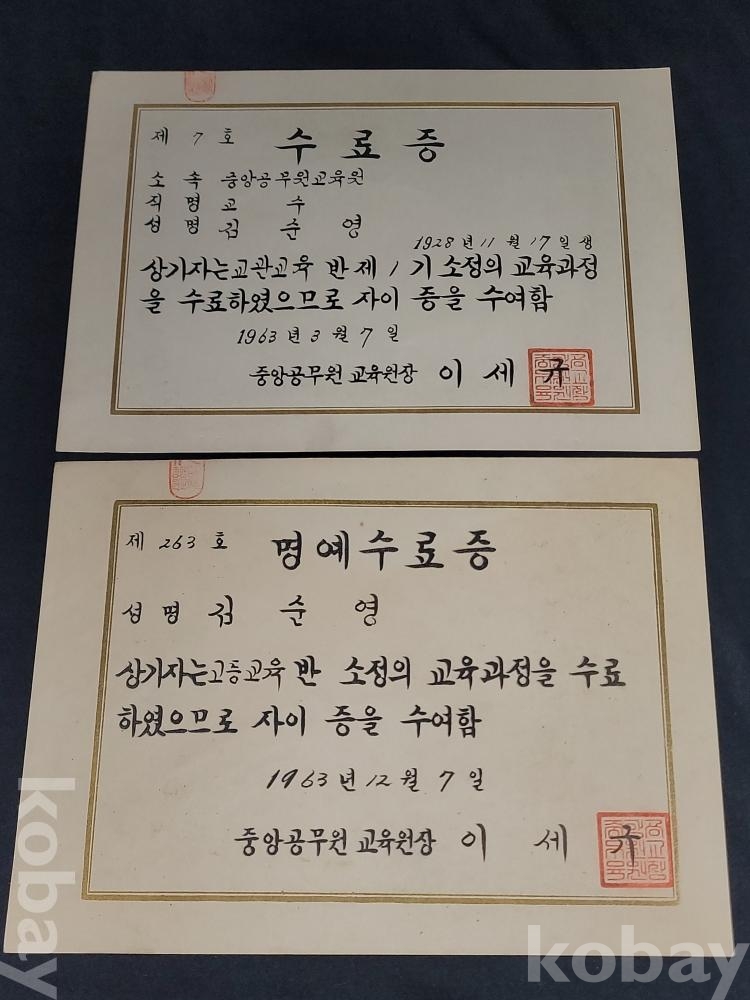 제 7 호 수료증
소 속 중앙공무원교육원
직 명 교 수
성 명 김 순 영
1928년 11월 17일생
상기자는 교관교육 반 제 1 기 소정의 교육과정
을 수료하였으므로 자이 증을 수여함
1963년 3월 7일
중앙공무원 교육원장 이 세 규
제 263 호 명예수료증
성 명 김 순 영
상기자는 고등교육 반 소정의 교육과정을 수료
하였으므로 자이 증을 수여함
1963년 12월 7일
중앙공무원 교육원장 이 세 규
kobay
kobay